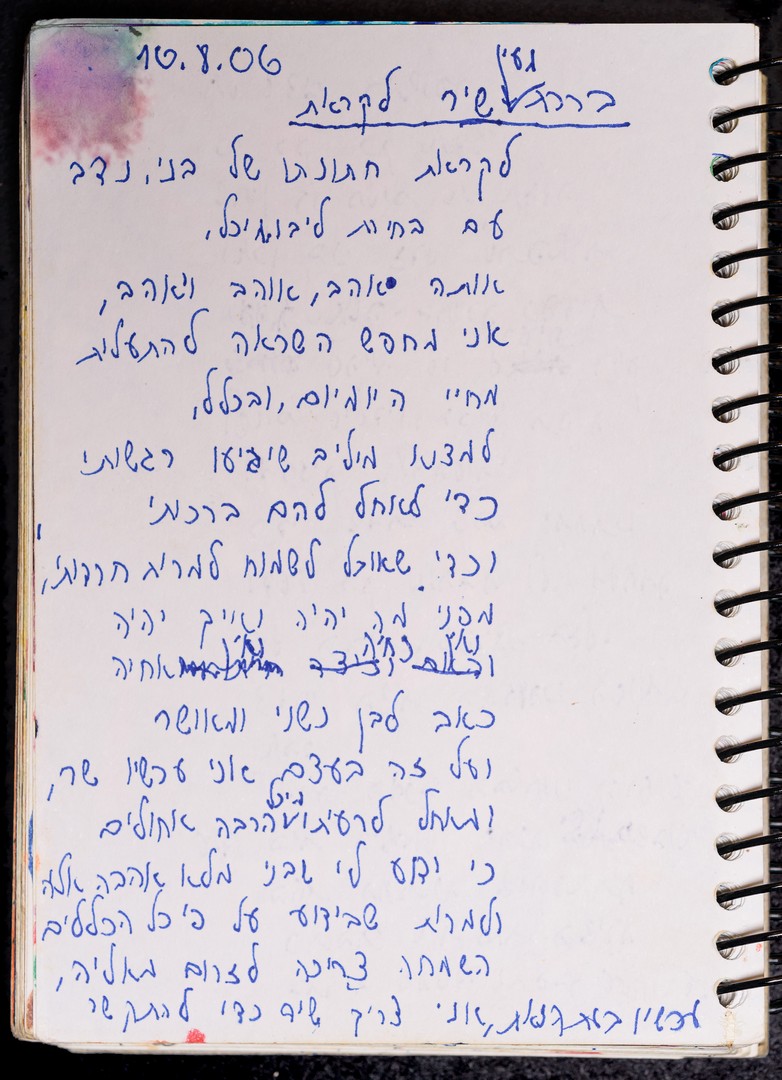 10.8.06
מעין
ברכת שיר לקראת
לקראת חתונתו של בני, נדב
עם בחירת ליבו מיכל,
אותה אוהב, אוהב ואוהב,
אני מחפש השראה להתעלות
מחיי היומיום, ובכלל,
למצוא מילים שיביעו רגשותי
כדי לאחל להם ברכותי
וכדי שאוכל לשמוח למרות חרדותי,
מפני מה יהיה ואיך יהיה
ואיך נחיה ואיך אחיה
כאב לבן נשוי ומאושר
ועל זה בעצם אני עכשיו שר,
ומאחל לרעיתו מיכל הרבה איחולים
כי ידוע לי שבני מלא אהבה אליה
ולמרות שבידוע על פי כל הכללים
השמחה צריכה לזרום מאליה,
עכשיו בעת הזאת, אני צריך שיר כדי להתקשר